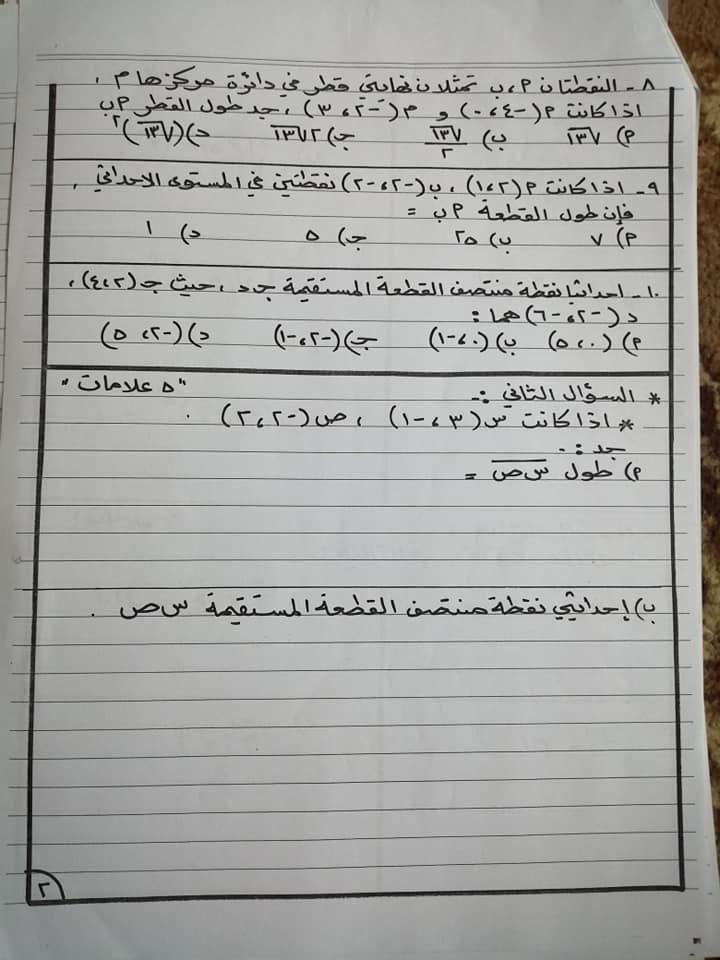 ٨- النقطتان أ، ب تمثلان نهايتي قطر في دائرة مركزها م،
اذا كانت أ(-٤، ٠) و م(-٢، ٣)، جد طول القطر أب
أ) √١٣ ب) √١٣/٢ ج) ٢√١٣ د) (√١٣)٢
٩- اذا كانت أ(١، ٢)، ب(-٢، -٢) نقطتين في المستوى الاحداثي،
فإن طول القطعة أب =
أ) ٧ ب) ٢٥ ج) ٥ د) ١
١٠- احداثيا نقطة منتصف القطعة المستقيمة ج د، حيث ج(٢، ٤)،
د(-٢، -٦) هما:
أ) (٠، ٥) ب) (٠، -١) ج) (-٢، -١) د) (-٢، ٥)
* السؤال الثاني:- "٥ علامات"
* اذا كانت س(٣، -١)، ص(-٢، ٢).
جد:-
أ) طول س ص =
ب) إحداثيي نقطة منتصف القطعة المستقيمة س ص.
٢